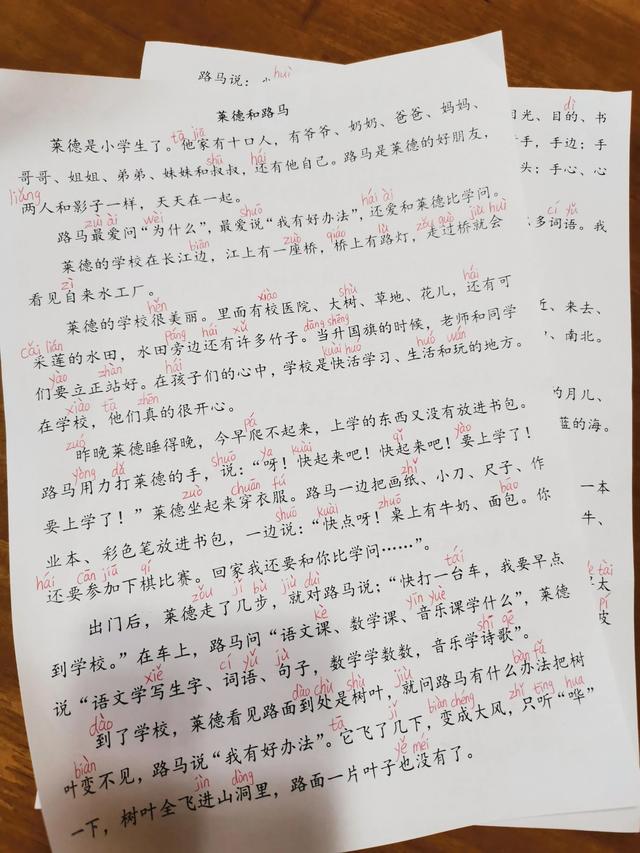 huì
路马说：
莱德和路马
tā jiā
莱德是小学生了。他家有十口人，有爷爷、奶奶、爸爸、妈妈、
shū hái
哥哥、姐姐、弟弟、妹妹和叔叔，还有他自己。路马是莱德的好朋友，
liǎng
两人和影子一样，天天在一起。
zuì ài wèi shuō hái ài
路马最爱问“为什么”，最爱说“我有好办法”，还爱和莱德比学问。
biān zuò qiáo lù zǒu guò jiù huì
莱德的学校在长江边，江上有一座桥，桥上有路灯，走过桥就会
zì
看见自来水工厂。
hěn xiào shù hái
莱德的学校很美丽。里面有校医院、大树、草地、花儿，还有可
cǎi lián páng hái xǔ dāng shēng
采莲的水田，水田旁边还有许多竹子。当升国旗的时候，老师和同学
yào zhàn hái kuài huó huó wán
们要立正站好。在孩子们的心中，学校是快活学习、生活和玩的地方。
xiào tā zhēn
在学校，他们真的很开心。
zuó pá
昨晚莱德睡得晚，今早爬不起来，上学的东西又没有放进书包。
yòng dǎ shuō ya kuài qǐ yào
路马用力打莱德的手，说：“呀！快起来吧！快起来吧！要上学了！
zuò chuān fú zhǐ
要上学了！”莱德坐起来穿衣服。路马一边把画纸、小刀、尺子、作
shuō kuài zhuō bāo
业本、彩色笔放进书包，一边说：“快点呀！桌上有牛奶、面包。你
hái cān jiā qí
还要参加下棋比赛。回家我还要和你比学问……”。
zǒu jǐ bù jiù duì tái
出门后，莱德走了几步，就对路马说：“快打一台车，我要早点
kè yīn yuè
到学校。”在车上，路马问“语文课、数学课、音乐课学什么”，莱德
xiě cí yǔ jù shī gē
说“语文学写生字、词语、句子，数学学数数，音乐学诗歌”。
dào dào chù shù jiù bàn fǎ
到了学校，莱德看见路面到处是树叶，就问路马有什么办法把树
biàn tā jǐ biàn chéng zhǐ tīng hua
叶变不见，路马说“我有好办法”。它飞了几下，变成大风，只听“哗”
jìn dòng yě méi
一下，树叶全飞进山洞里，路面一片叶子也没有了。
dì
目光、目的、书
手，手边；手
头；手心、心
cí yǔ
多词语。我
来去、
、南北。
的月儿、
蓝的海。
一本
牛、
tài
太
pí
皮